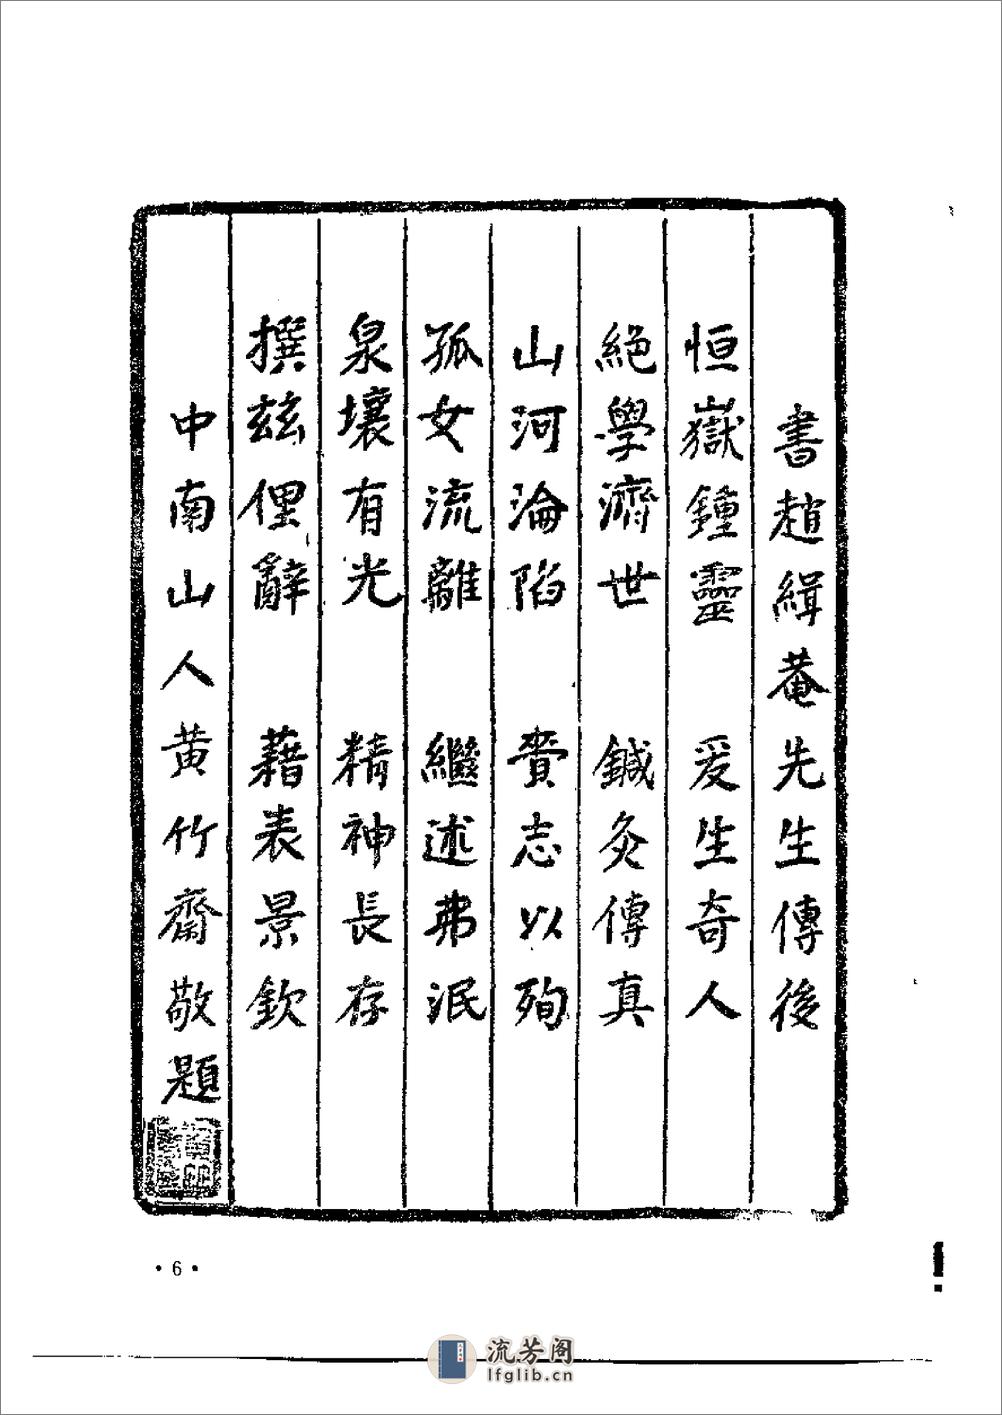 書趙緝菴先生傳後
恒嶽鍾靈 爰生奇人
絕學濟世 鍼灸傳真
山河淪陷 賫志以殉
孤女流離 繼述弗泯
泉壤有光 精神長存
撰茲俚辭 藉表景欽
中南山人黃竹齋敬題
·6·
流芳阁
lfglib.cn